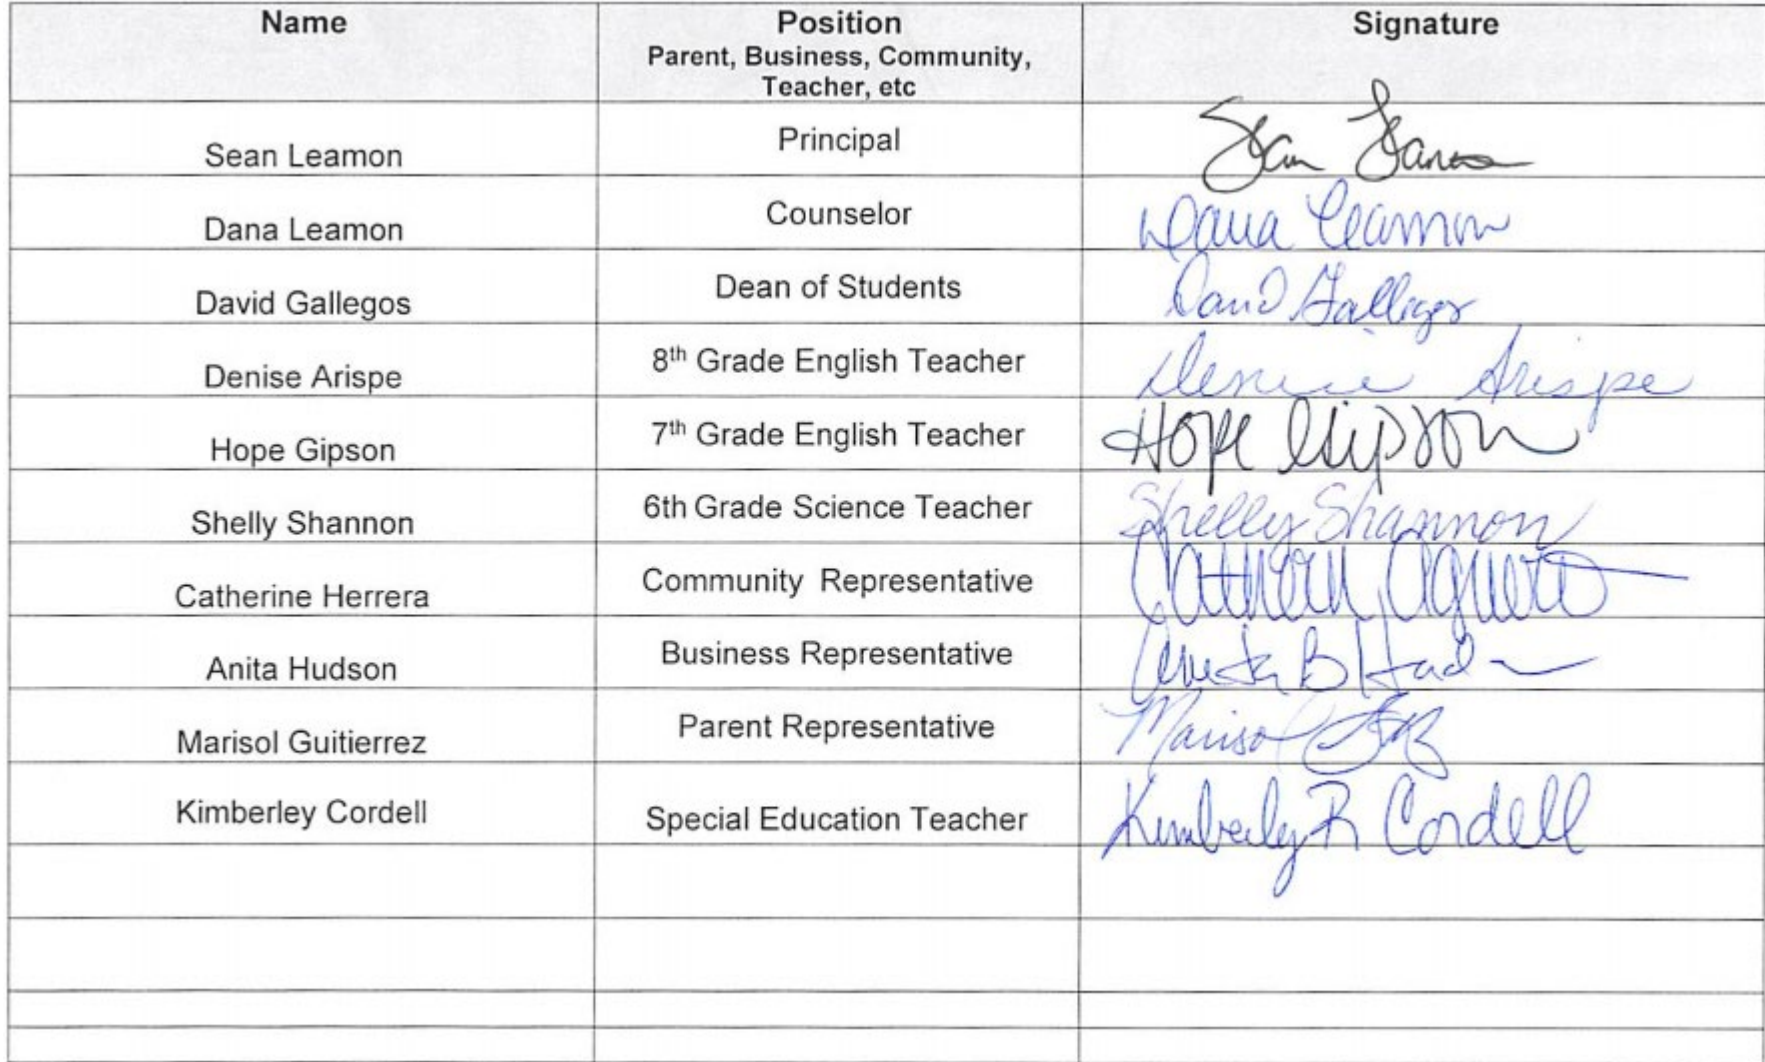 Name Position Signature
Parent, Business, Community,
Teacher, etc
Sean Leamon Principal Sean Leamon
Dana Leamon Counselor Dana Leamon
David Gallegos Dean of Students David Gallegos
Denise Arispe 8th Grade English Teacher Denise Arispe
Hope Gipson 7th Grade English Teacher Hope Gipson
Shelly Shannon 6th Grade Science Teacher Shelly Shannon
Catherine Herrera Community Representative
Anita Hudson Business Representative Anita B Hud
Marisol Guitierrez Parent Representative Marisol
Kimberley Cordell Special Education Teacher Kimberly R Cordell